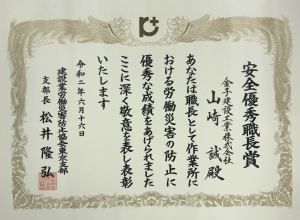 安全優秀職長賞
金子建設工業株式会社
山﨑誠殿
あなたは職長として作業所に
おける労働災害の防止に
優秀な成績をあげられました
ここに深く敬意を表し表彰
いたします
令和二年六月十六日
建設業労働災害防止協会東京支部
支部長 松井隆弘